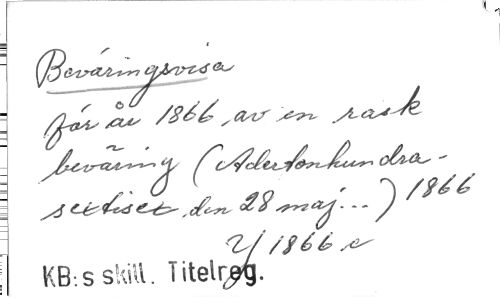 Beväringsvisa
för år 1866, av en rask
beväring (Adertonhundra-
sextisex, den 28 maj...) 1866
Y 1866 c
KB:s skill. Titelreg.